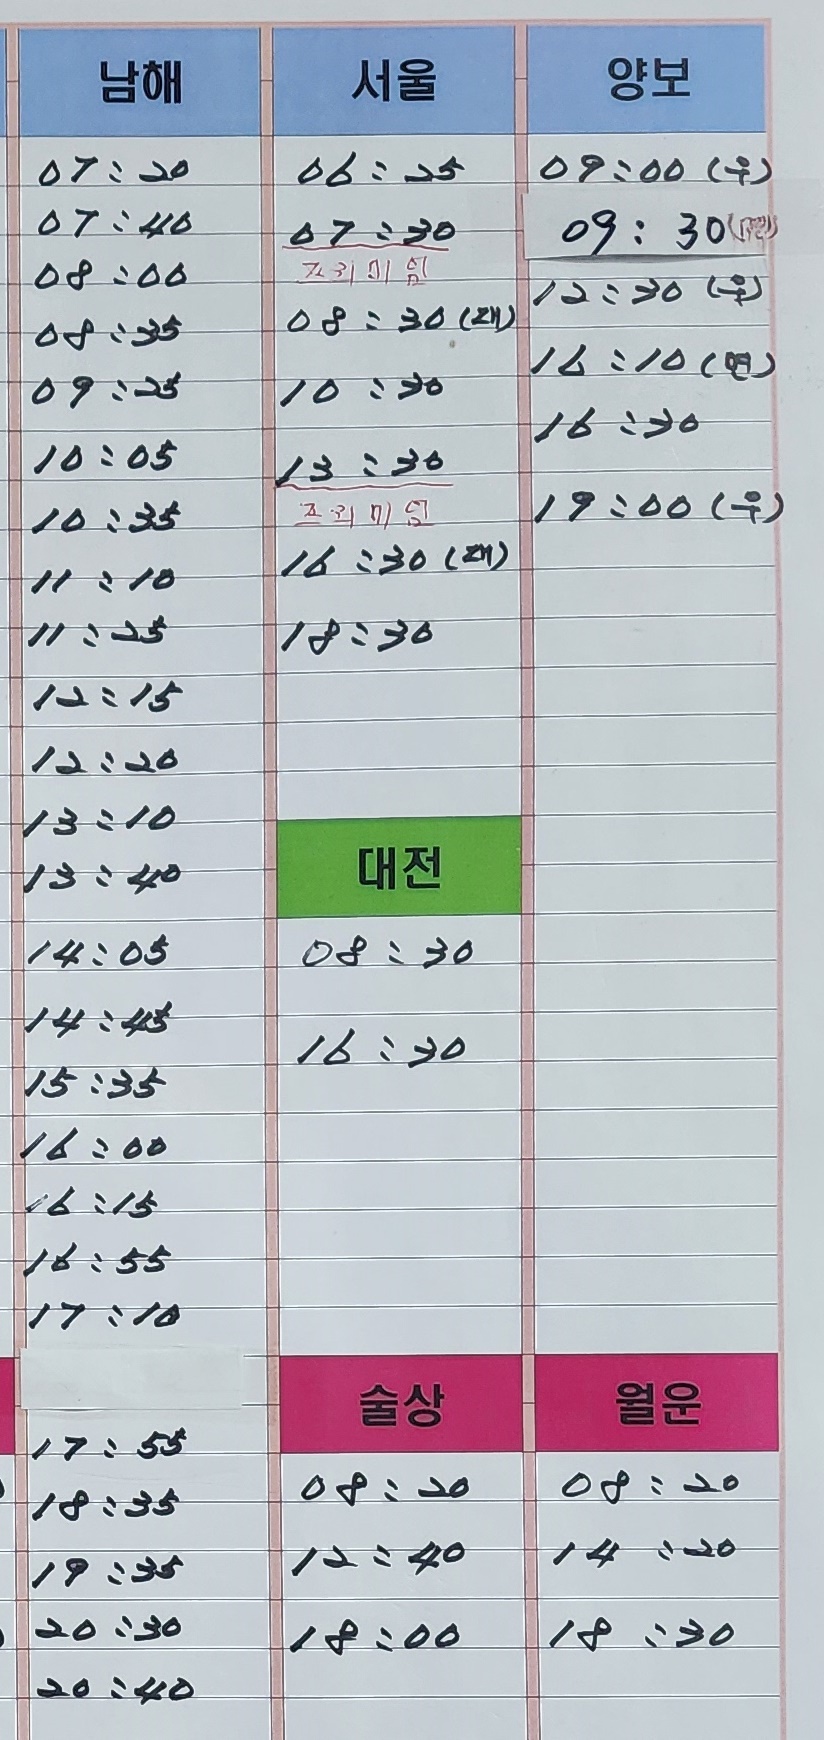 남해
07:20
07:40
08:00
08:35
09:25
10:05
10:35
11:10
11:25
12:15
12:20
13:10
13:40
14:05
14:45
15:35
16:00
16:15
16:55
17:10
17:55
18:35
19:35
20:30
20:40
서울
06:25
07:30
프리미엄
08:30 (대)
10:30
13:30
프리미엄
16:30 (대)
18:30
대전
08:30
16:30
술상
08:20
12:40
18:00
양보
09:00 (우)
09:30
12:30 (우)
16:10 (면)
16:30
19:00 (우)
월운
08:20
14:20
18:30